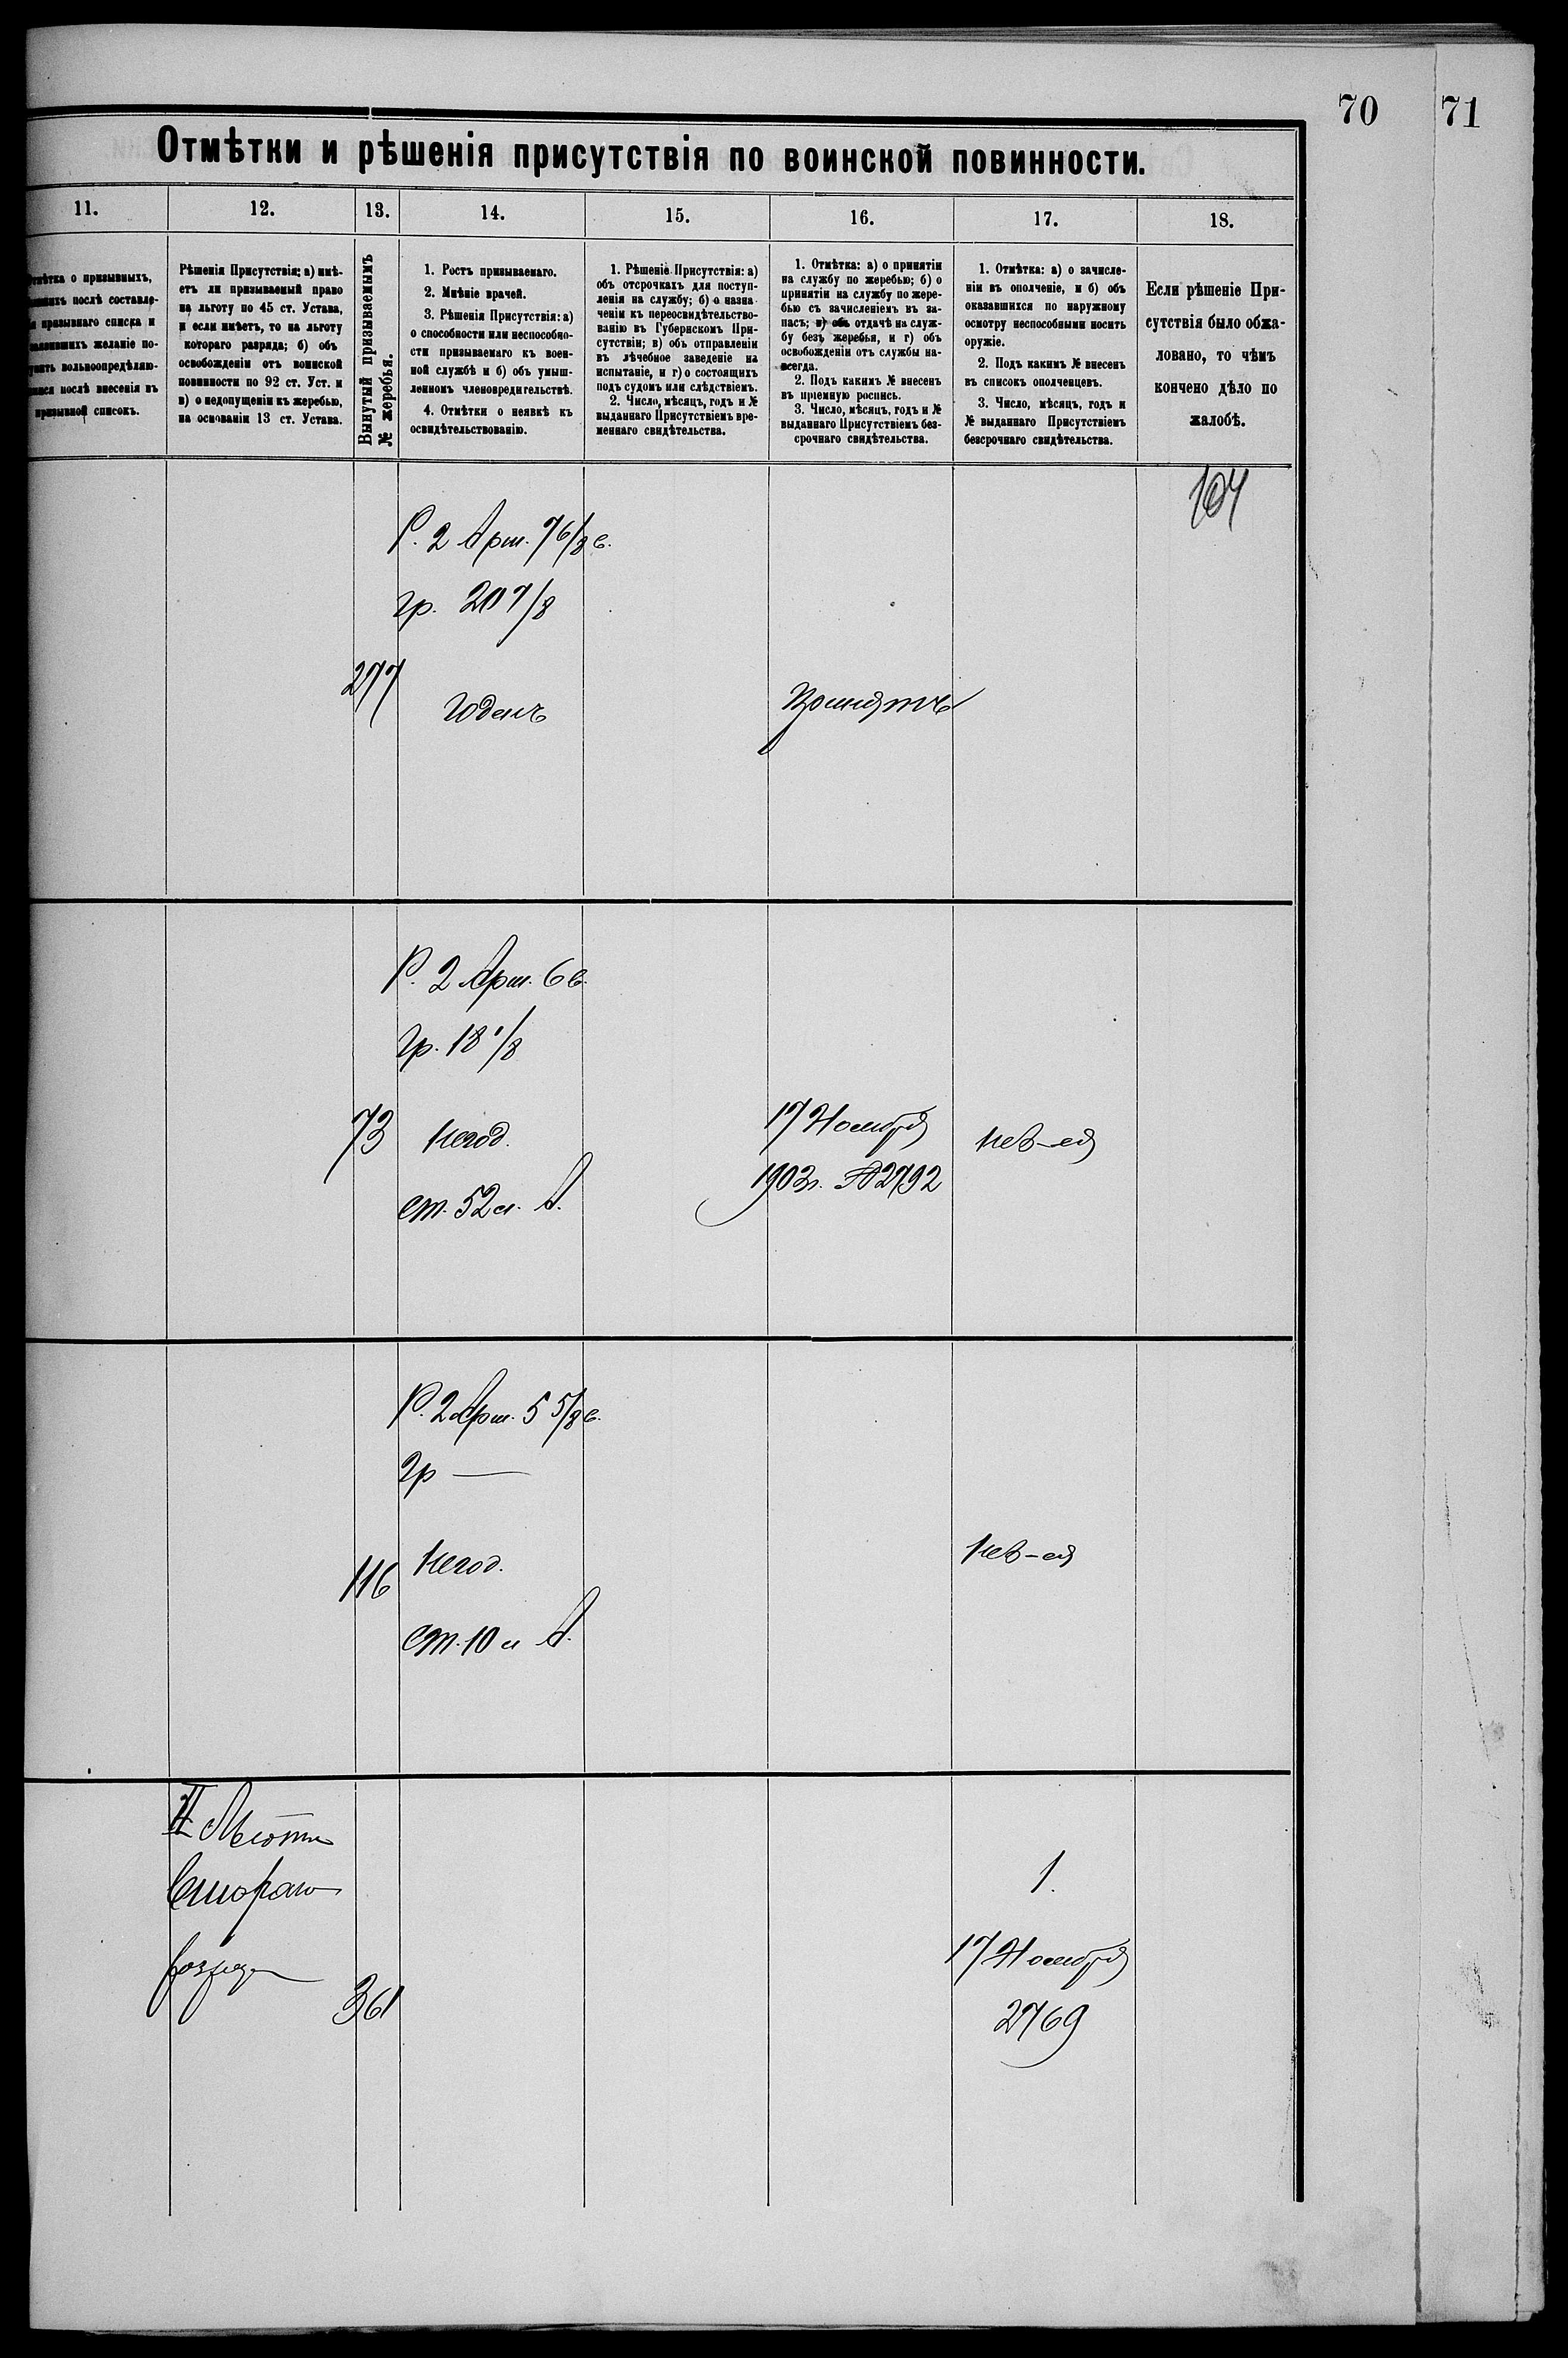 70 71
Отмѣтки и рѣшенія присутствія по воинской повинности.
11. 12. 13. 14. 15. 16. 17. 18.
о призывныхъ,
послѣ составле-
призывнаго списка и
желаніе по-
вольноопредѣляю-
послѣ внесенія въ
призывной списокъ.
Рѣшенія Присутствія: а) имѣ-
етъ ли призываемый право
на льготу по 45 ст. Устава,
и если имѣетъ, то на льготу
котораго разряда; б) объ
освобожденіи отъ воинской
повинности по 92 ст. Уст. и
в) о недопущеніи къ жеребью,
на основаніи 13 ст. Устава.
Вынутый призываемымъ
№ жеребья.
1. Ростъ призываемаго.
2. Мнѣніе врачей.
3. Рѣшенія Присутствія: а)
о способности или неспособно-
сти призываемаго къ воен-
ной службѣ и б) объ умыш-
ленномъ членовредительствѣ.
4. Отмѣтки о неявкѣ къ
освидѣтельствованію.
1. Рѣшеніе Присутствія: а)
объ отсрочкахъ для поступ-
ленія на службу; б) о назна-
ченіи къ переосвидѣтельство-
ванію въ Губернскомъ При-
сутствіи; в) объ отправленіи
въ лѣчебное заведеніе на
испытаніе, и г) о состоящихъ
подъ судомъ или слѣдствіемъ.
2. Число, мѣсяцъ, годъ и №
выданнаго Присутствіемъ вре-
меннаго свидѣтельства.
1. Отмѣтка: а) о принятіи
на службу по жеребью; б) о
принятіи на службу по жере-
бью съ зачисленіемъ въ за-
пасъ; в) объ отдачѣ на служ-
бу безъ жеребья, и г) объ
освобожденіи отъ службы на-
всегда.
2. Подъ какимъ № внесенъ
въ пріемную роспись.
3. Число, мѣсяцъ, годъ и №
выданнаго Присутствіемъ без-
срочнаго свидѣтельства.
1. Отмѣтка: а) о зачисле-
ніи въ ополченіе, и б) объ
оказавшихся по наружному
осмотру неспособными носить
оружіе.
2. Подъ какимъ № внесенъ
въ списокъ ополченцевъ.
3. Число, мѣсяцъ, годъ и
№ выданнаго Присутствіемъ
безсрочнаго свидѣтельства.
Если рѣшеніе При-
сутствія было обжа-
ловано, то чѣмъ
кончено дѣло по
жалобѣ.
104
Р. 2 Арш. 7 6/8 в.
гр. 20 7/8
277 Годенъ Принятъ
Р. 2 Арш. 6 в.
гр. 18 1/8
73 Негод. 17 Ноября нав-да
ст. 52 л. А. 1903г. № 2792
Р. 2 Арш. 5 5/8 в.
гр —
116 Негод. нав-да
ст. 10 л А.
II Льготы
Второго
разряда
1.
17 Ноября
361 2769